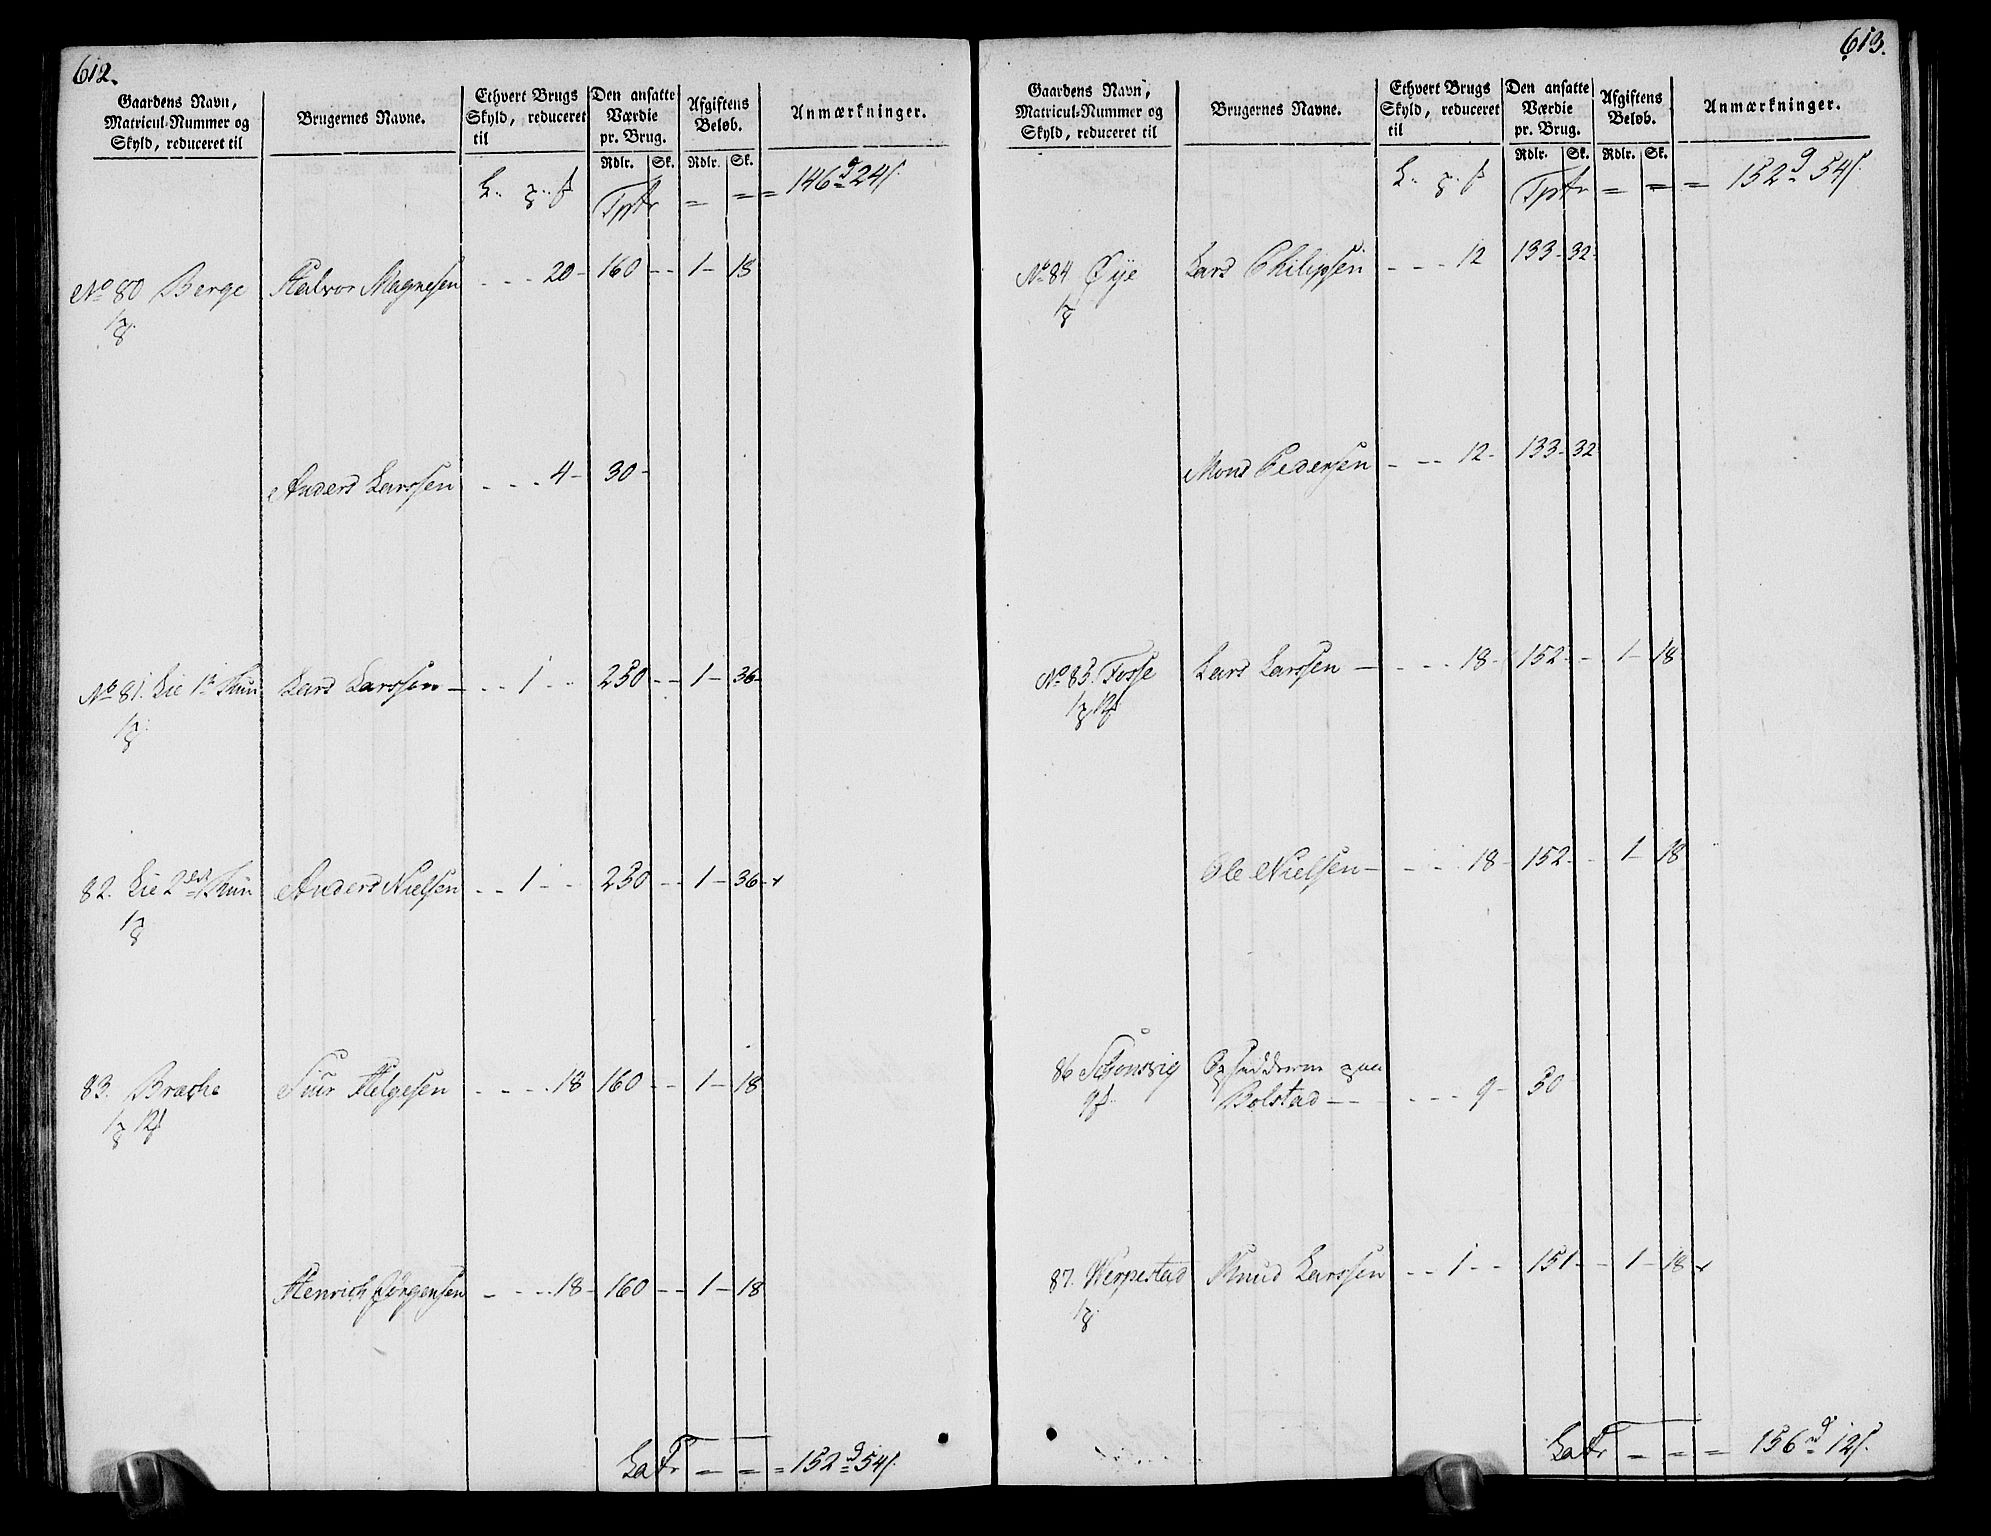 612.
Gaardens Navn,
Matricul-Nummer og
Skyld, reduceret til
Brugernes Navne.
Ethvert Brugs
Skyld, reduceret
til
Den ansatte
Værdie
pr. Brug.
Rdlr. Sk.
Afgiftens
Beløb.
Rdlr. Sk.
Anmærkninger.
Tptr = = = 146 24
No 80 Berge Halvor Magnesen - - - 20 - 160 - - 1 - 18
Anders Larssen - - - 4 - 30 -
No 81. Lie Lars Larssen - - - 1 - - 230 - - 1 - 36 -
82. Lie Anders Nielsen - - 1 - - 230 - - 1 - 36 -
83. Bræche Siur Helgesen - - - - 18 160 - - 1 - 18
Henrich Jørgensen - - - - 18 - 160 - - 1 - 18
LaTr = = = 152 54
613.
Gaardens Navn,
Matricul-Nummer og
Skyld, reduceret til
Brugernes Navne.
Ethvert Brugs
Skyld, reduceret
til
Den ansatte
Værdie
pr. Brug.
Rdlr. Sk.
Afgiftens
Beløb.
Rdlr. Sk.
Anmærkninger.
Tptr = = = 152 54
No 84 Øye Lars Philipsen - - - 12 133 - 32 -
Mons Pedersen - - - 12 - 133 - 32
No 85. Fosse Lars Larssen - - - - 18 - 152 - - 1 - 18
Ole Nielsen - - - - 18 - 152 - - 1 - 18
86 Opsidderne paa
Bolstad - - - - - - 9 - 30
87. Werpestad Knud Larssen - - 1 - - 151 - - 1 - 18
LaTr = = = 156 12